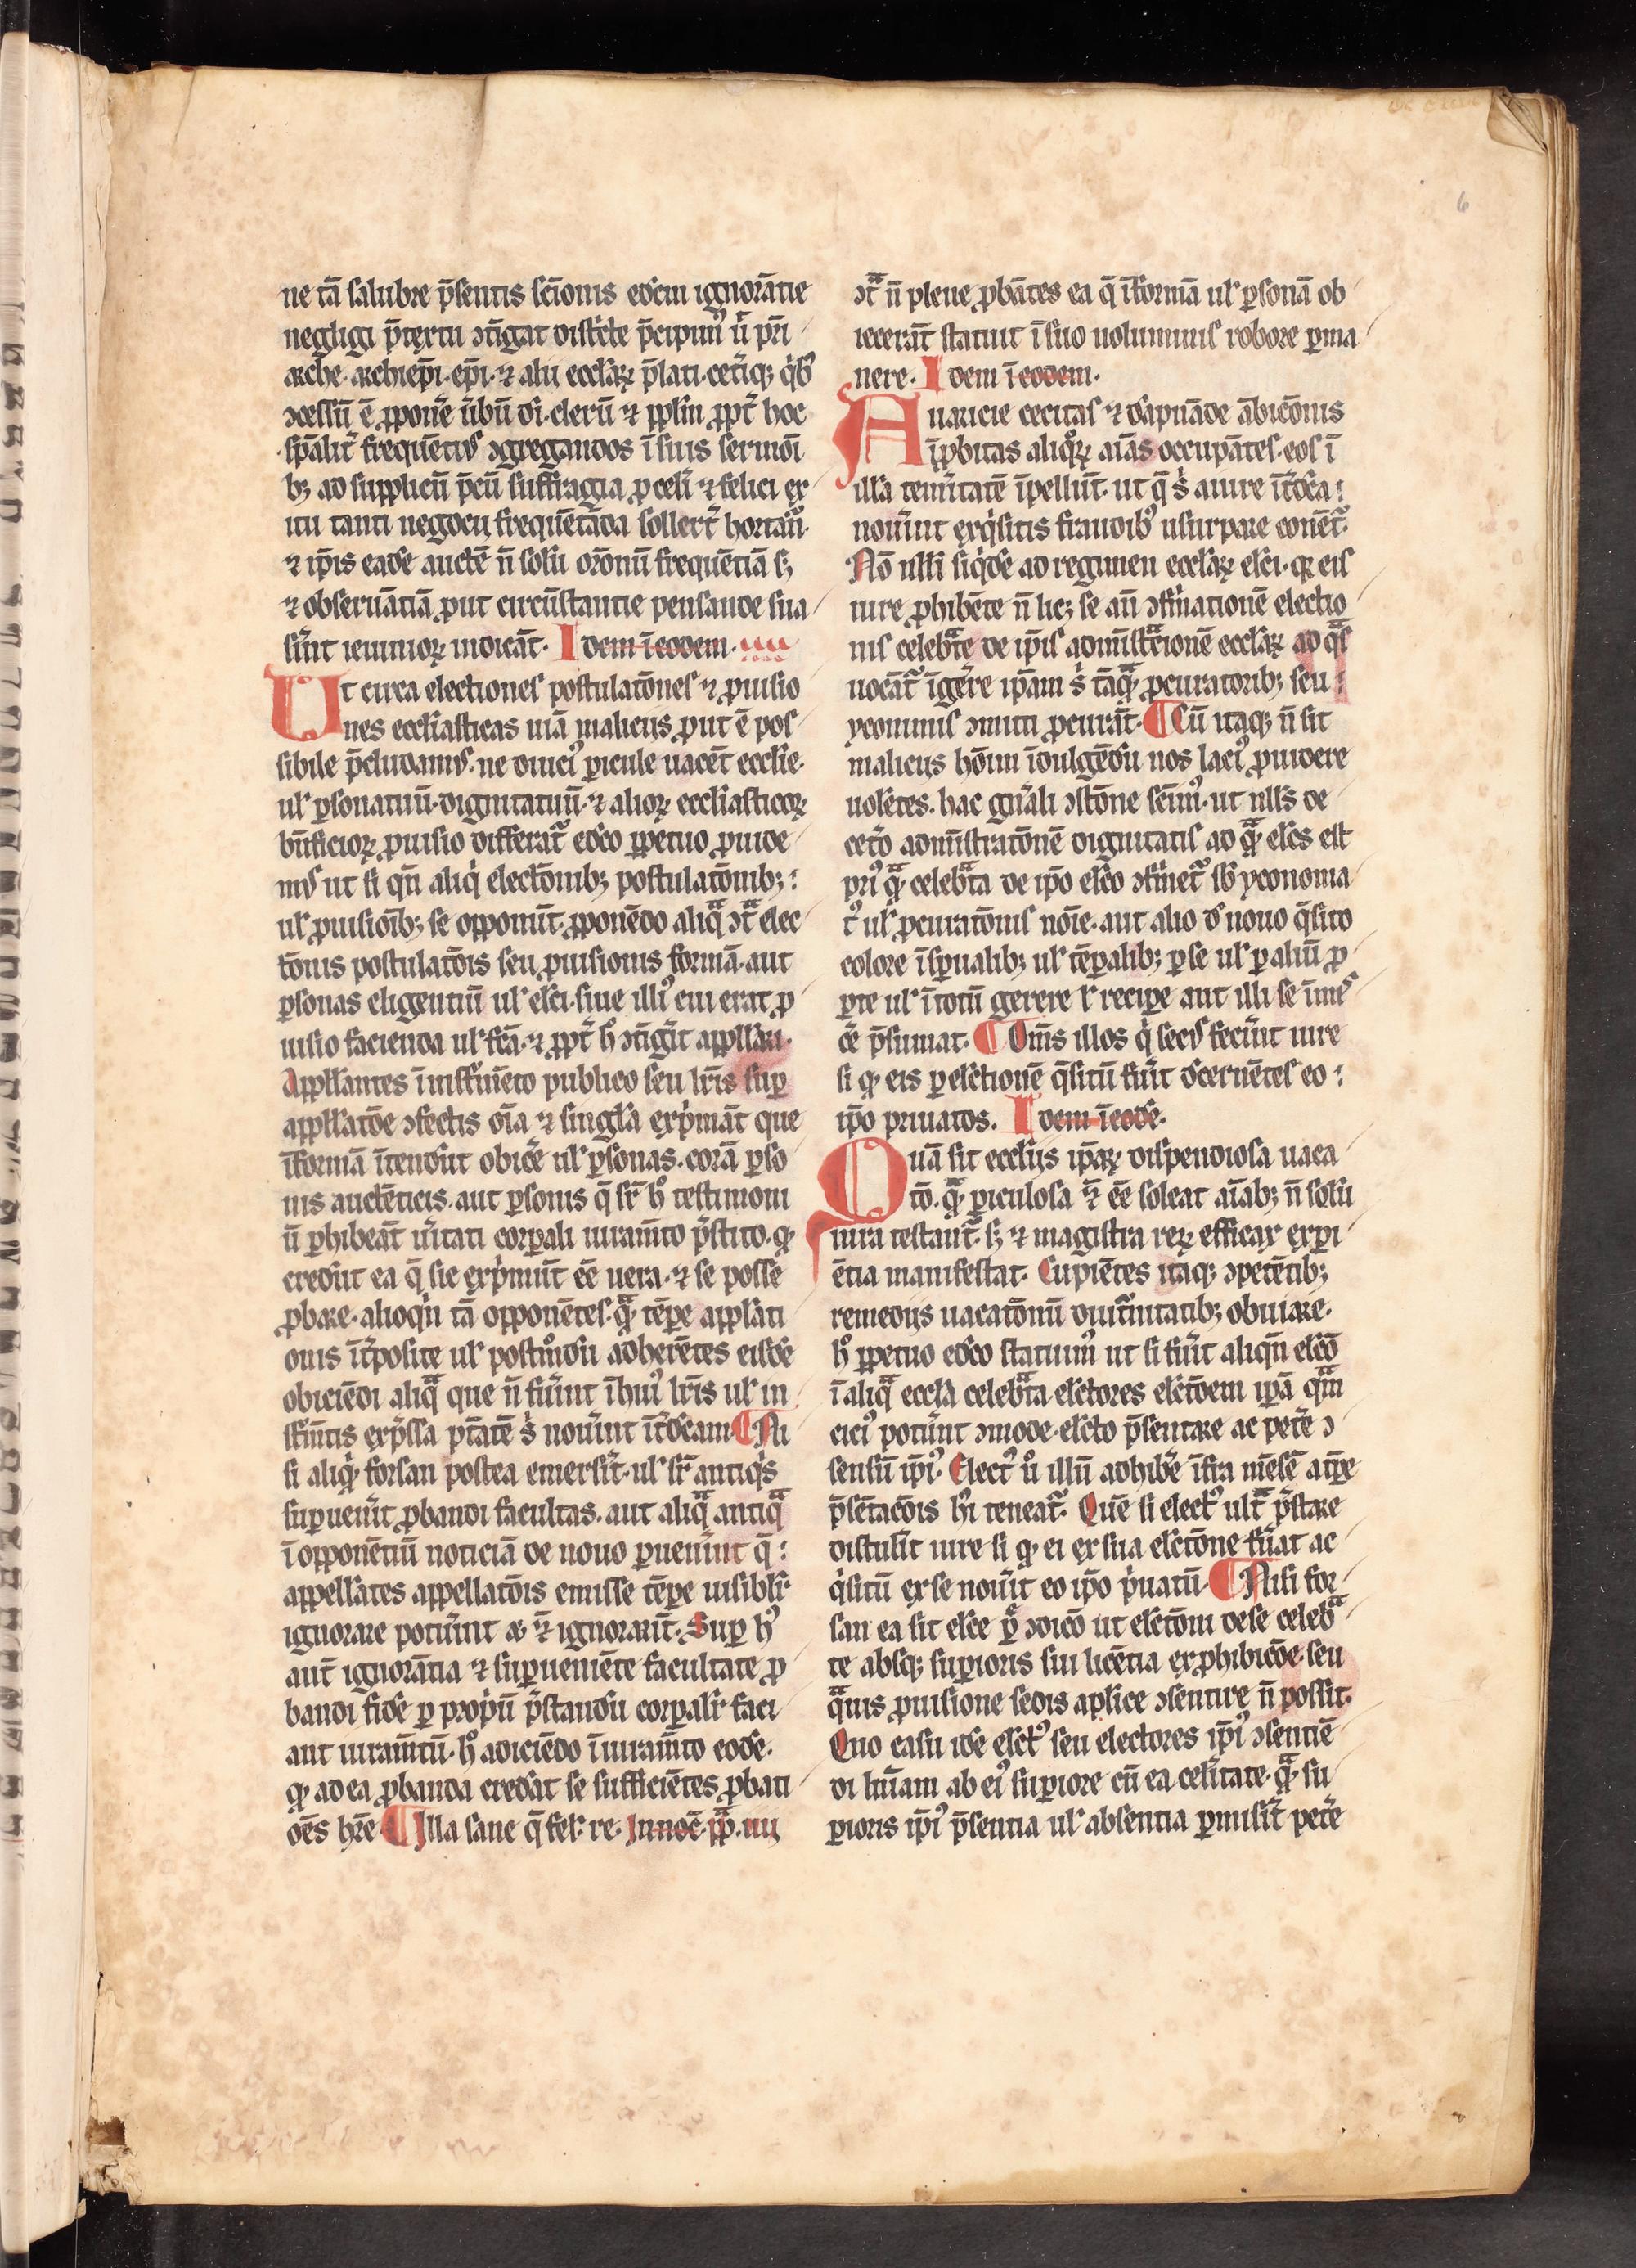 6
ne tā salubre p̄sentis sc̄ionis eoꝺem ignorātie
negligi p̄textu ↄtīgat ꝺistͥcte p̄cipimꝰ ut pͥri
arche. archiep̄i. ep̄i. ⁊ alii eccl̄aꝝ p̄lati. ceteͥqꝫ qͥbꝰ
ↄcessū ē ꝓponēe ūbū ꝺi. clerū ⁊ ppl̄m ꝓpt̄ hoc
sp̄alit̄ frequētiꝰ ↄgreganꝺos ī suis sermōi
bꝫ aꝺ supplicū p̄cū suffragia ꝓ celi ⁊ felici ex
itu tanti negocij frequētāꝺa sollert̄ hortāꝰ.
⁊ ip̄is eaꝺē auctē n̄ solū or̄onū frequētiā sꝫ
⁊ obseruātiā ꝓut circūstantie pensanꝺe sua
sīnt ieiunioꝝ inꝺicāt. Iꝺem ī eoꝺem.
Ut circa electiones postulatōnes ⁊ ꝓuisio
nes eccl̄iasticas uiā malicijs ꝓut ē pos
sibile p̄cluꝺamꝰ. ne ꝺiuciꝰ ꝑicule uacēt eccl̄ie.
ul̓ ꝑsonatuū. ꝺignitatuū. ⁊ alioꝝ eccl̄iasticoꝝ
bn̄ficioꝝ ꝓuisio ꝺifferat᷑ eꝺco ꝑpetuo ꝓuiꝺe
mꝰ ut si qn̄ aliqͥ electōnibꝫ postulatōnibꝫ
ul̓ ꝓuisiōibꝫ se opponūt. ꝓponēꝺo aliqͣ ↄtͣ elec
tōnis postulatōis seu ꝓuisionis formā. aut
ꝑsonas eligentiū ul̓ elc̄i. siue illiꝰ cui erat ꝓ
uisio facienꝺa ul̓ fc̄a. ⁊ ꝓpt̄ h̓ ↄtīgit̄ appll̄ari.
Appll̄antes ī instr̄mēto publico seu lr̄is suꝑ
appll̄atōe ↄfectis oīa ⁊ singl̄a exp̄māt que
ī formā ītenꝺūt obicē ul̓ ꝑsonas. corā ꝑso
nis auctēticis. aut ꝑsonis q̄ sr̄ h̓ testimoni
ū ꝑhibeāt ūitati corꝑali iuram̄to p̄stito. qꝫ
creꝺūt ea q̄ sic exp̄mūt eē uera. ⁊ se posse
ꝓbare. alioqͥn tā opponētes. qͣꝫ tēꝑe appll̄ati
onis īt̄posite ul̓ postmōꝺū aꝺherētes eisꝺē
obiciēꝺi aliqͣ que n̄ fūint ī huiꝰ lr̄is ul̓ in
str̄mtis exp̄ssa ptātē s̓ nouīnt īt̄ꝺc̄am. Ni
si aliqͥꝫ forsan postea emersit̄. ul̓ sr̄ antiqͥs
suꝑuenīt ꝓbanꝺi facultas. aut aliqͣ antiqͣ
ī opponētiū noticiā ꝺe nouo ꝑuenīnt q̄
appell̄ātes appellatōis emisse tēꝑe uisibl̓r
ignorare potūint ac ⁊ ignorarūt. Suꝑ hꝰ
aut̄ ignorātia ⁊ suꝑueniēte facultate ꝓ
banꝺi fiꝺē ꝑ propͥū p̄stanꝺū corꝑalr̄ faci
ant iuram̄tū. h̓ aꝺiciēꝺo ī iuram̄to eoꝺē.
qꝫ aꝺ ea ꝓbanꝺa creꝺāt se sufficiētes ꝓbati
ōes hr̄e. Illa sane q̄ fel̓. re. Innoc̄. pp̄. iiij
ↄtͣ n̄ plene ꝓbātes ea q̄ ī formā ul̓ ꝑsonā ob
iecerāt statuit ī suo uoluminis robore ꝑma
nere. Iꝺem ī eoꝺem.
Auaricie cecitas ⁊ ꝺāpnāꝺe ābicōnis
īꝓbitas aliqͦꝝ aiās occupātes. eos ī
illā temītatē īpellūt. ut q̄ s̓ a iure īt̄ꝺc̄a
nouīnt exqͥsitis frauꝺibꝰ usurpare conēt᷑.
Nō ulli siqͥꝺē aꝺ regimen eccl̄aꝝ elc̄i. qꝫ eis
iure ꝓhibēte n̄ licꝫ se an̄ ↄfirmationē electio
nis celebͣte ꝺe ip̄is aꝺmīstͣtionē eccl̄aꝝ aꝺ qͣs
uocāt᷑ īgere ip̄am s̓ tāqͣꝫ ꝓcuratoribꝫ seu
yconimis ↄmitti ꝓcurāt. Cū itaqꝫ n̄ sit
malicijs hōim īꝺulgēꝺū nos laciꝰ ꝓuiꝺere
uolētes. hac gn̄ali ↄstōne scīmꝰ. ut nll̄s ꝺe
cetͦo aꝺmīstratōnē ꝺignitatis aꝺ qͣꝫ elc̄s est
priꝰ qͣꝫ celebͣta ꝺe ip̄o elc̄o ↄfirmet᷑ sb̄ yconoma
tꝰ ul̓ ꝓcuratōnis noīe. aut alio ꝺe nouo q̄sito
colore ī sp̄ualibꝫ ul̓ tēꝑalibꝫ ꝑ se ul̓ ꝑ aliū ꝓ
ꝑte ul̓ ī totū gerere ł recipe aut illi se īmis
cē p̄sumat. Om̄s illos qͥ secꝰ fecīnt iure
si qꝫ eis ꝑ elc̄tionē q̄situm fūit ꝺecernētes eo
ip̄o priuatos. Iꝺem ī eoꝺē.
Quā sit eccl̄ijs ip̄aꝝ ꝺispenꝺiosa uaca
tō. qͣꝫ ꝑiculosa ⁊ eē soleat aīabꝫ n̄ solū
iura testant᷑. sꝫ ⁊ magistra reꝝ efficax exꝑi
ētia manifestat. Cupiētes itaqꝫ ↄpetētibꝫ
remeꝺijs uacatōnū ꝺiut̄nitatibꝫ obuiare.
h̓ ꝑpetuo eꝺco statuimꝰ ut si fūit aliqn̄ elcō
ī aliqͣ eccl̄a celebͣta elc̄tores elc̄tōem ip̄ā qͣm
ciciꝰ potūint ↄmoꝺe. elc̄to p̄sentare ac petē ↄ
sensū ip̄iꝰ. Electꝰ uͦ illū aꝺhibē īfra mēsē a tp̄e
p̄sētacōis hꝰi teneat᷑. Quē si electꝰ ultͣ p̄stare
ꝺistulīt iure si qꝫ ei ex sua elc̄tōne fūat ac
qͥsitū ex se nouīt eo ip̄o pͥuatū. Nisi for
san ea sit elc̄e ꝑ̄ ↄꝺicō ut elc̄tōni ꝺe se celebͣ
te absqꝫ suꝑioris sui licētia ex ꝓhibicōe. seu
qͣuis ꝓuisione seꝺis aplice ↄsentire n̄ possit.
Quo casu iꝺē elc̄tꝰ seu electores ip̄iꝰ ↄsentiē
ꝺi licn̄iam ab eiꝰ suꝑiore cū ea celītate. qͣꝫ su
ꝑioris ip̄iꝰ p̄sentia ul̓ absentia ꝑmisīt petē